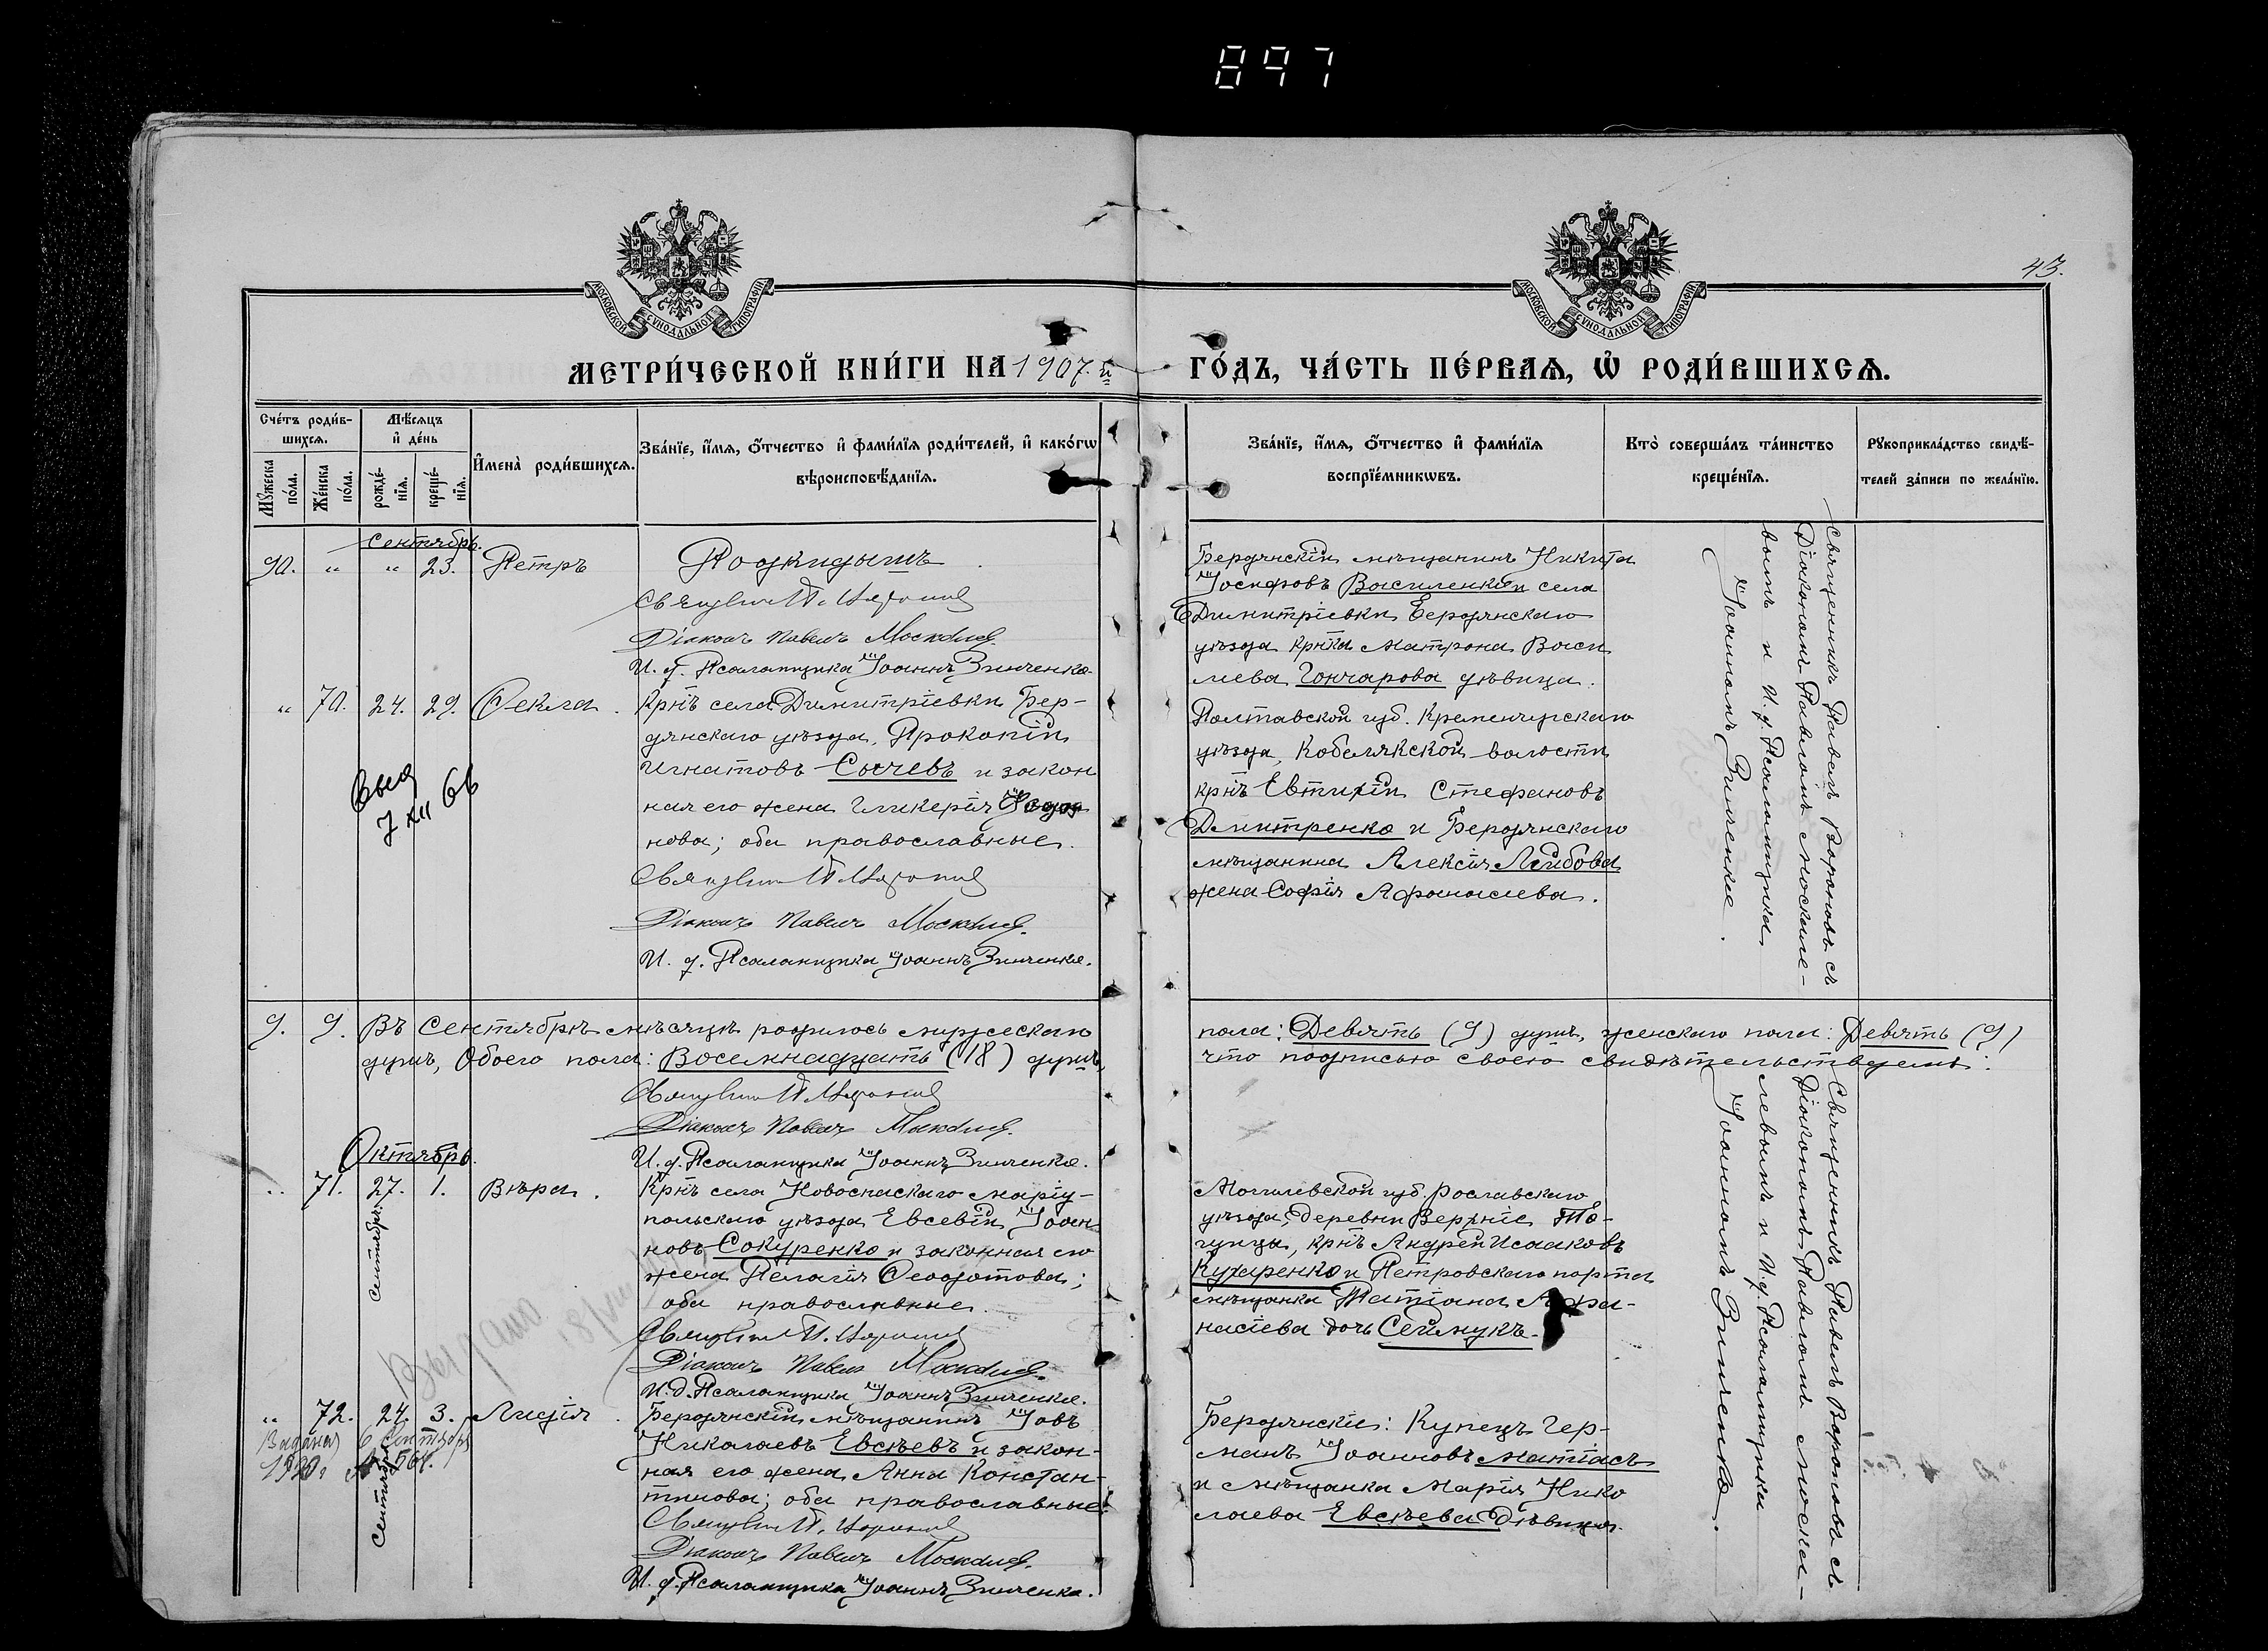 897
43.
МОСКОВСКОЙ СѴНОДАЛЬНОЙ ТИПОГРАФІИ
МОСКОВСКОЙ СѴНОДАЛЬНОЙ ТИПОГРАФІИ
МЕТРИ́ЧЕСКОЙ КНИ́ГИ НА 1907.й
ГО́ДЪ, ЧА́СТЬ ПЕ́РВАѦ, Ѡ҆ РОДИ́ВШИХСѦ.
Сче́тъ роди́в-
шихсѧ.
Мѣ́сѧцъ
и҆ де́нь
Мꙋ́жеска по́ла.
Же́нска по́ла.
рожде́-
нїѧ.
креще́-
нїѧ.
И҆мена̀ роди́вшихсѧ.
Зва́нїе, и҆́мѧ, ѻ҆́тчество и҆ фами́лїѧ роди́телей, и҆ како́гѡ
вѣроисповѣ́данїѧ.
Зва́нїе, и҆́мѧ, ѻ҆́тчество и҆ фами́лїѧ
воспрїе́мникѡвъ.
Кто̀ соверша́лъ та́инство
креще́нїѧ.
Рꙋкоприкла́дство свидѣ́-
телей за́писи по жела́нїю.
Сентябрь.
90. " " 23. Петръ
Подкидышъ
Діаконъ Павелъ Москалев
И. д. Псаломщика Іоаннъ Зинченко.
Бердянскій мѣщанинъ Никита
Іосифовъ Василенко и села
Димитріевки Бердянскаго
уѣзда кр꙼нка Матрона Васи
лева Гончарова дѣвица.
Священникъ Павелъ Вороновъ съ
Діакономъ Павломъ Москале-
вымъ и И. д. Псаломщика
Іоанномъ Зинченко.
" 70. 24. 29. Ѳекла.
Крнъ села Димитріевки Бер-
дянскаго уѣзда, Прокопій
Игнатовъ Сычевъ и закон
ная его жена Гликерія
нова; оба православные.
Діаконъ Павелъ Москалев.
И. д. Псаломщика Іоаннъ Зинченко.
Выд
7 XII 66
Полтавской губ. Кременчугскаго
уѣзда, Кобелякской волости
крнъ Евтихій Стефановъ
Дмитренко и Бердянскаго
мѣщанина Алексія
жена Софія Афанасіева.
9. 9. Въ Сентябрѣ мѣсяцѣ родилось мужескаго
пола: Девять (9) душъ, женскаго пола: Девять (9)
душъ, Обоего пола: Восемнадцать (18) душъ,
что подписью своею свидѣтельствуемъ:
Діаконъ Павелъ Москалев.
И. д. Псаломщика Іоаннъ Зинченко.
Октябрь.
" 71. 27. 1. Вѣра.
Сентября.
Крнъ села Новоспаскаго Маріу-
польскаго уѣзда Евсевій Іоан
новъ Сокуренко и законная его
жена Пелагія Ѳеодотова;
оба православные.
Діаконъ Павелъ Москалев.
И. д. Псаломщика Іоаннъ Зинченко.
Выдано
Могилевской губ. Рославскаго
уѣзда, деревни Верхніе
крнъ Андрей Исааковъ
Кухаренко и Петровскаго порта
мѣщанка Татіана Афа-
насіева дочь Сеймукъ.
Священникъ Павелъ Вороновъ съ
Діакономъ Павломъ Моска-
левымъ и И. д. Псаломщика
Іоанномъ Зинченко.
" 72. 24. 3. Лидія.
Сентября
Бердянскій мѣщанинъ Іовъ
Николаевъ Евсѣевъ и закон-
ная его жена Анна Констан-
тинова; оба православные.
Діаконъ Павелъ Москалев.
И. д. Псаломщика Іоаннъ Зинченко.
Бердянскіе: Купецъ Гер-
манъ Іоанновъ Матіасъ
и мѣщанка Марія Нико
лаева Евсѣева дѣвица.